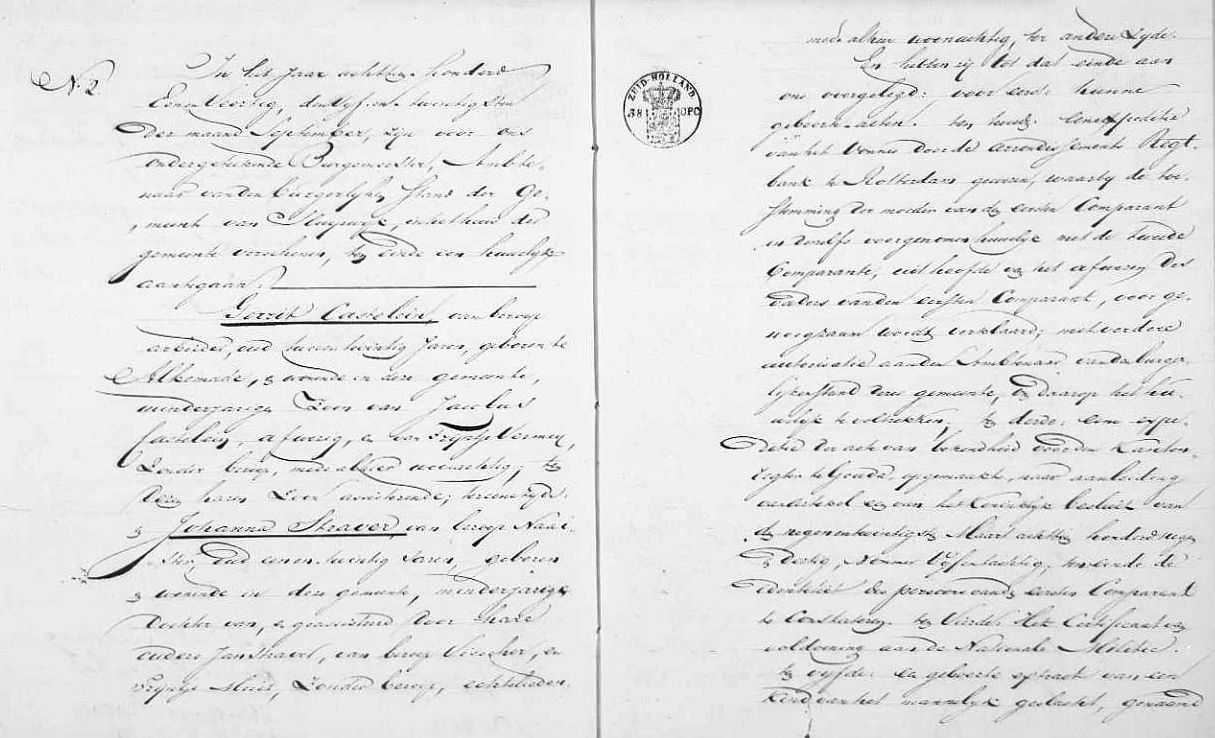 N. 2
In het Jaar achttien honderd
Eenen Veertig, den vyf en twintigsten
der maand September, zyn voor ons
ondergetekende Burgemeester, Ambte-
naar van den burgerlyken Stand der Ge-
meente van Sluipwyk, in het huis der
gemeente verschenen, ten einde een huwelyk
aantegaan.
Gerrit Castelein, van beroep
arbeider, oud twee en twintig Jaren, geboren te
Alkemade, & wonende in deze gemeente,
minderjarige Zoon van Jacobus
Castelein, afwezig, en van Vermey,
Zonder beroep, mede alhier woonachtig,
deze haren Zoon assisterende; ter eenre zyde.
& Johanna Straver, van beroep Naai-
ster, oud eenen twintig Jaren, geboren
& wonende in deze gemeente, minderjarige
dochter van, & geassisteerd door hare
ouders Jan Straver, van beroep Visscher, en
Zonder beroep, echtelieden.
mede alhier woonachtig, ter andere Zyde.
En hebben zy tot dat einde aan
ons voorgelegd: voor eerst: hunne
geboorte-acten. ten tweede: eene expeditie
van het Vonnis door de arrondissements Regt-
bank te Rotterdam gewezen, waarby de toe-
stemming der moeder van den eersten Comparant
in deszelfs voorgenomen huwelyk met de tweede
Comparante, uit hoofde van het afwezen des
vaders van den eersten Comparant, voor ge-
noegzaam wordt verklaard; met verdere
autorisatie aan den Ambtenaar van den burger-
lyken stand dezer gemeente, om daarop het hu-
welyk te voltrekken, ten derde: eene expe-
ditie der acte van bekendheid voor den Kanton-
regter te Gouda, opgemaakt, naar aanleiding
van het Koninklyk besluit van
den negenentwintigsten Maart achttien honderd negen
& dertig, Nommer Vyfentachtig, tendeerende de
identiteit des persoons van den eersten Comparant
te Constateren. ten Vierde: Het Certificaat van
voldoening aan de Nationale Militie.
ten vyfde: en geboorte extract van een
Kind van het mannelyk geslacht, genaamd
ZUID-HOLLAND
38 OPC